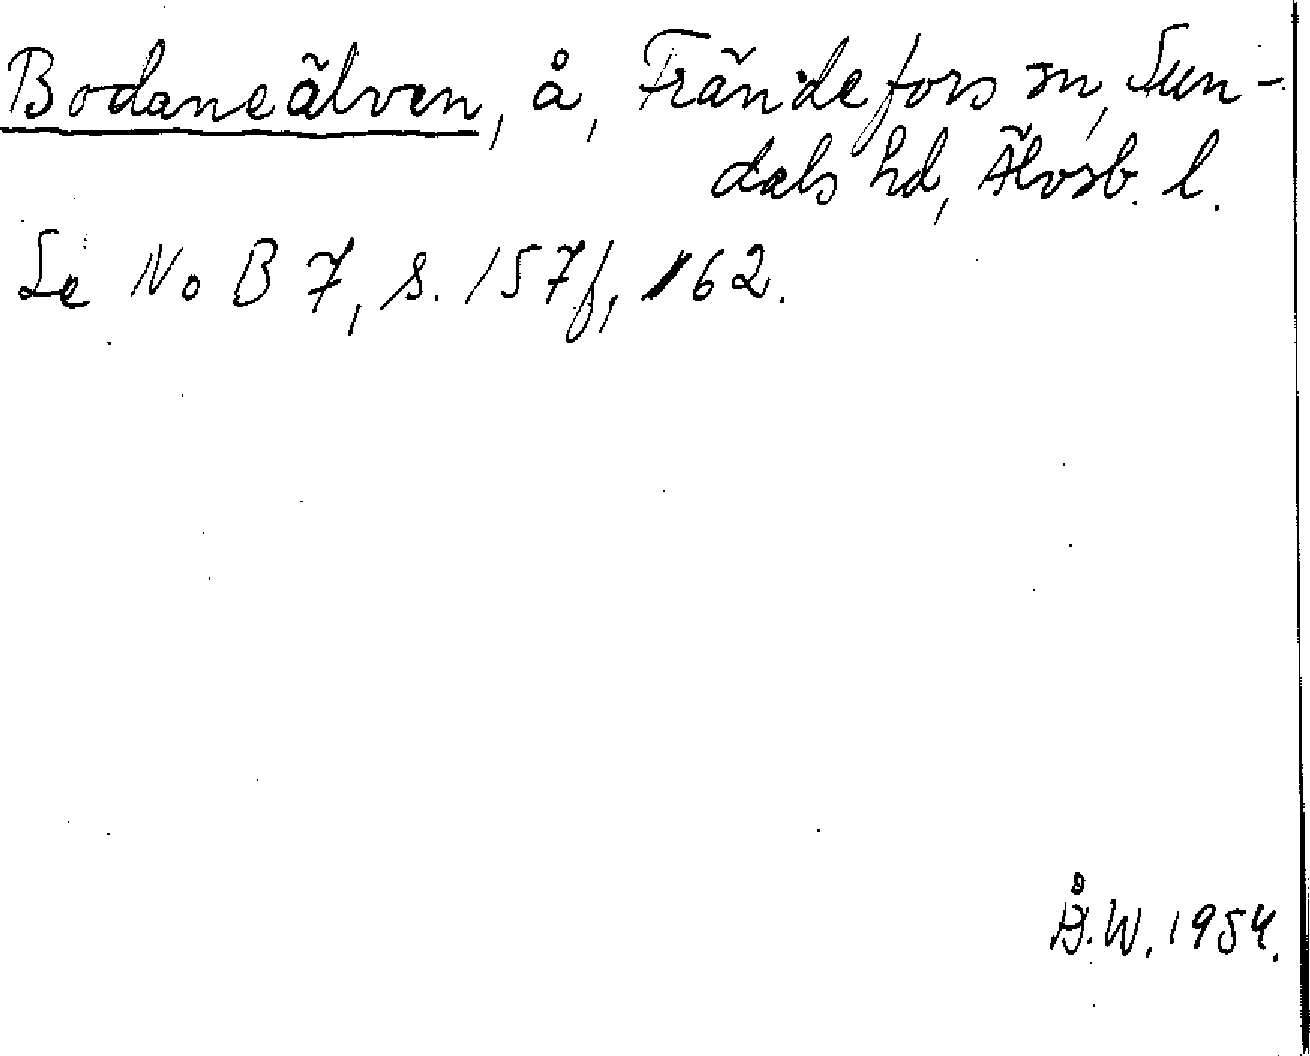 Bodaneälven, å, Frändefors sn, Sun-
dals hd, Älvsb. l.
Se No B 7, s. 157f, 162.
Å.W. 1954.